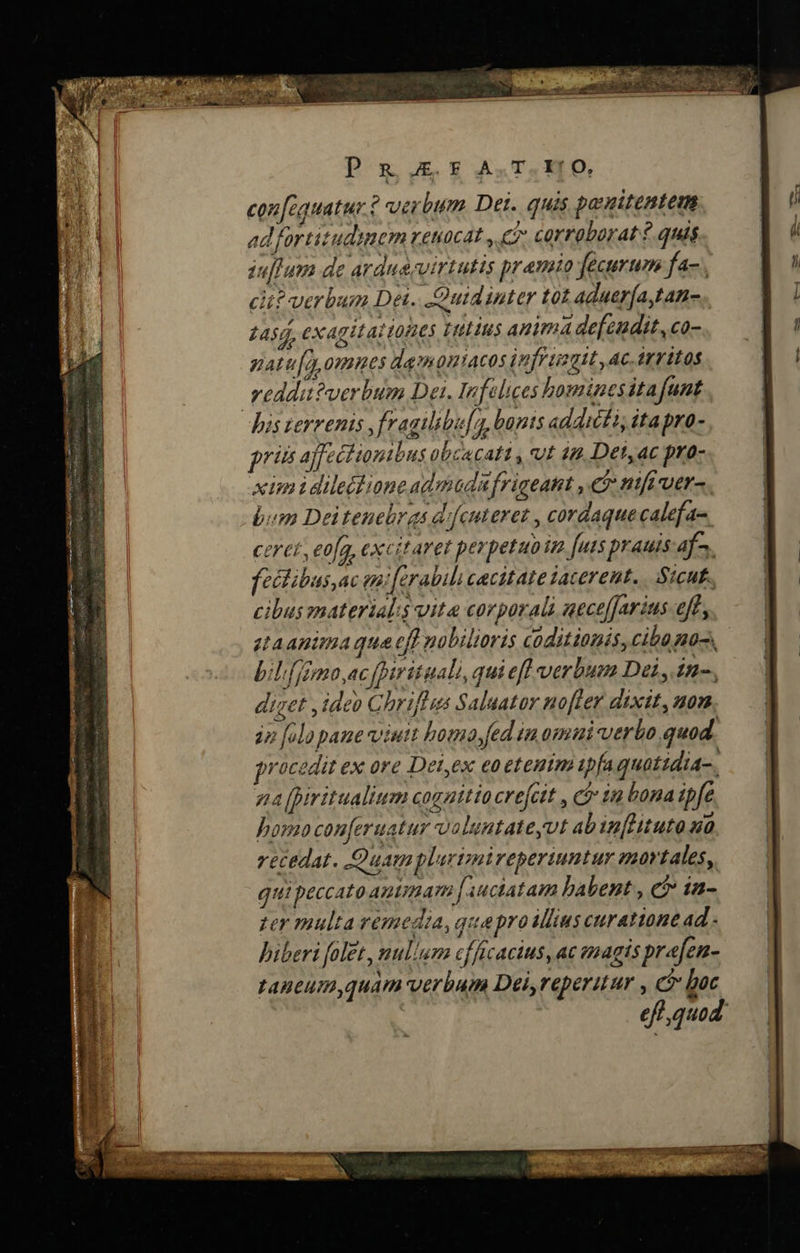 PRÆFATIO.
conſequatur? verbum Dei. quis pœnitentem
ad fortitudinem reuocat, & corroborat? quis
iuſtum de ardua virtutis præmio ſecurum fa-
cit? verbum Dei. Quid inter tot aduerſa, tan-
tasq́; exagitationes tutius anima defendit, co-
natuſq́; omnes dæmoniacos infringit, ac irritos
reddit? verbum Dei. Infelices homines ita ſunt
his terrenis, fragilibuſq́; bonis addicti, ita pro-
priis affectionibus obcæcati, vt in Dei, ac pro-
ximi dilectione admodũ frigeant, & niſi ver-
bum Dei tenebras diſcuteret, cordaque calefa-
ceret, eoſq́; excitaret perpetuò in ſuis prauis af-
fectibus, ac miſerabili cæcitate iacerent. Sicut
cibus materialis vitæ corporali neceſſarius eſt,
ita anima quæ eſt nobilioris cõditionis, cibo no-
biliſſimo, ac ſpirituali, qui eſt verbum Dei, in-
diget, ideò Chriſtus Saluator noſter dixit, non
in ſolo pane viuit homo, ſed in omni verbo quod
procedit ex ore Dei, ex eo etenim ipſa quotidia-
na ſpiritualium cognitio creſcit, & in bona ipſe
homo conſeruatur voluntate, vt ab inſtituto nõ
recedat. Quam plurimi reperiuntur mortales,
qui peccato animam ſauciatam habent, & in-
ter multa remedia, quæ pro illius curatione ad-
hiberi ſolẽt, nullum efficacius, ac magis præſen-
taneum, quàm verbum Dei, reperitur, & hoc
eſt, quod